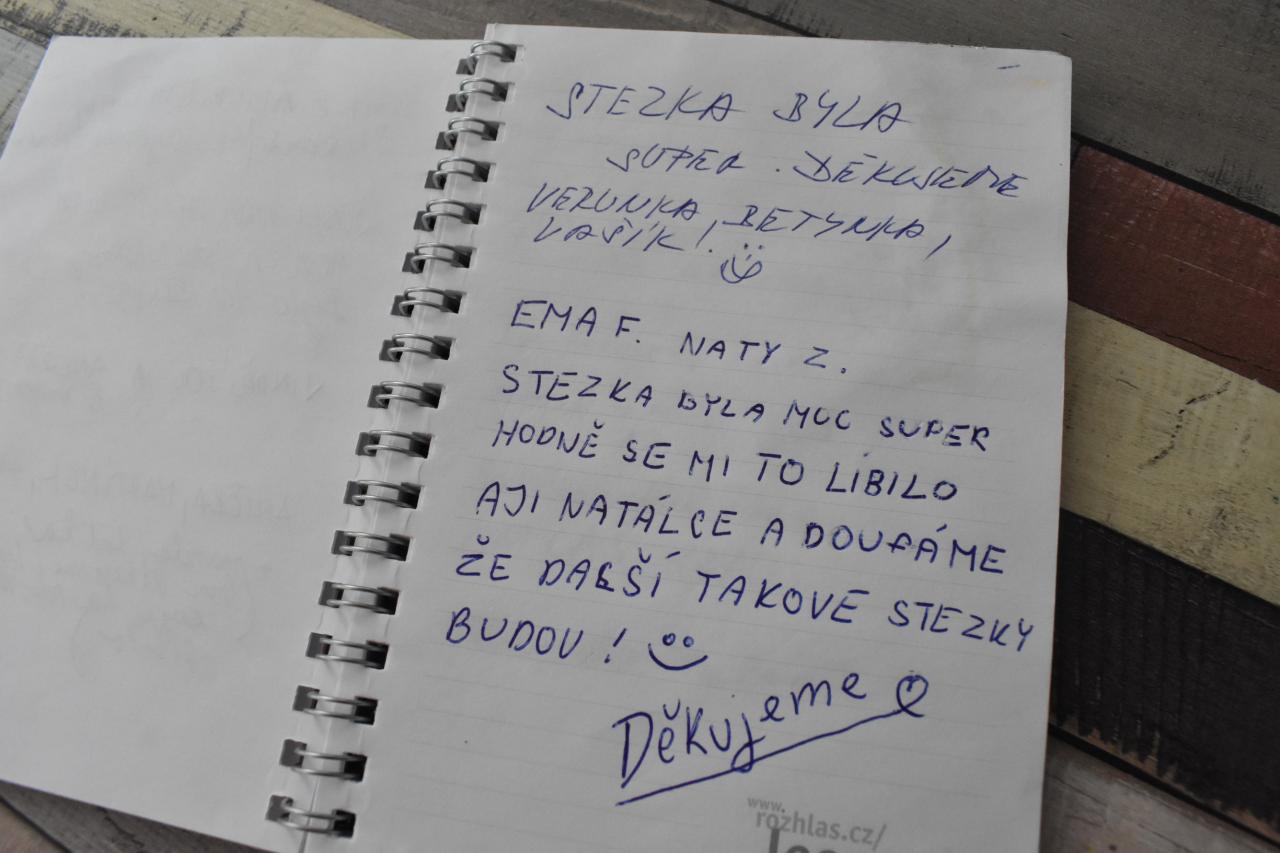 STEZKA BYLA
SUPER. DĚKUJEME
VERUNKA, BETYNKA,
VAŠÍK!
EMA F. NATY Z.
STEZKA BYLA MOC SUPER
HODNĚ SE MI TO LÍBILO
AJI NATÁLCE A DOUFÁME
ŽE DALŠÍ TAKOVÉ STEZKY
BUDOU!
Děkujeme
www.
rozhlas.cz/